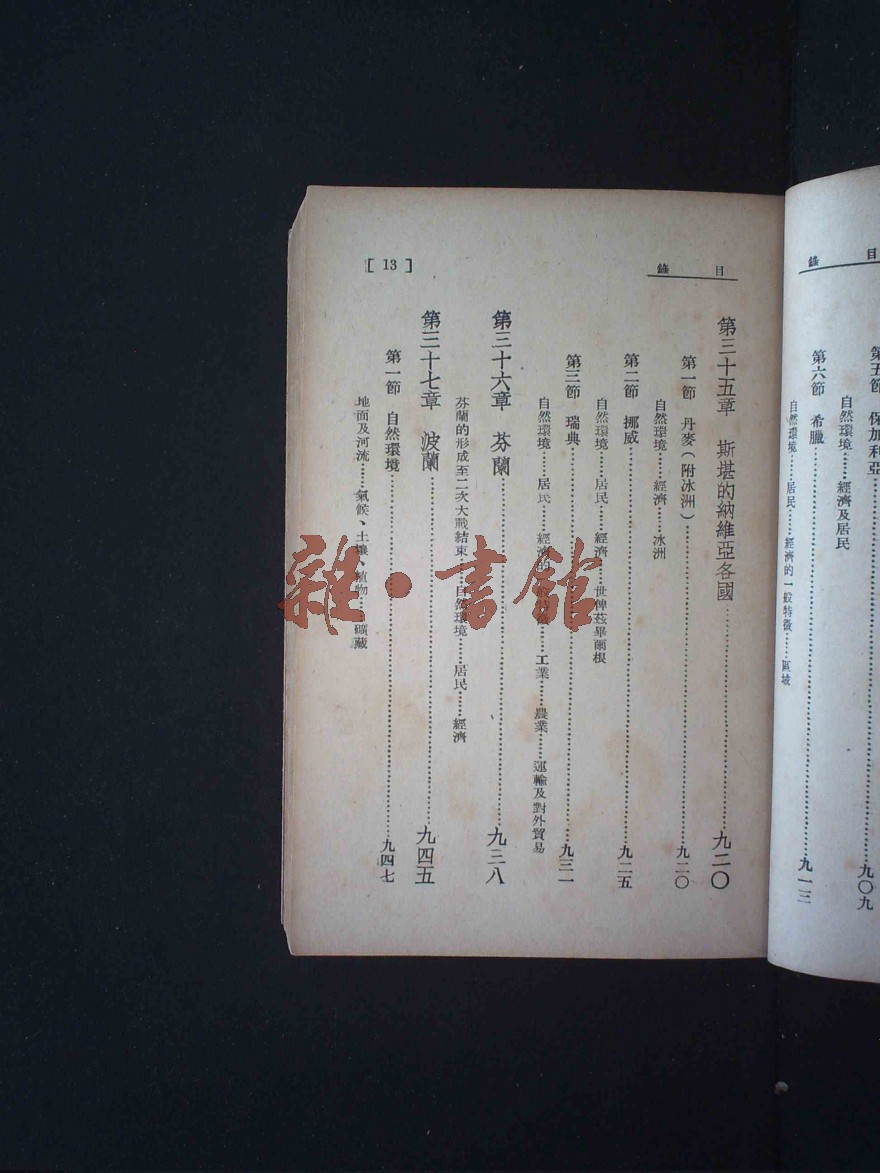 錄　目
第五節　保加利亞……九〇九
自然環境……經濟及居民
第六節　希臘……九一三
自然環境……居民……經濟的一般特徵……區域
目　錄
[ 13 ]
第三十五章　斯堪的納維亞各國……九二〇
第一節　丹麥(附冰洲)……九二〇
自然環境……經濟……冰洲
第二節　挪威……九二五
自然環境……居民……經濟……世俾茲畢爾根
第三節　瑞典……九三一
自然環境……居民……經濟的……工業……農業……運輸及對外貿易
第三十六章　芬蘭……九三八
芬蘭的形成至二次大戰結束……自然環境……居民……經濟
第三十七章　波蘭……九四五
第一節　自然環境……九四七
地面及河流……氣候、土壤、植物……礦藏
雜·書館